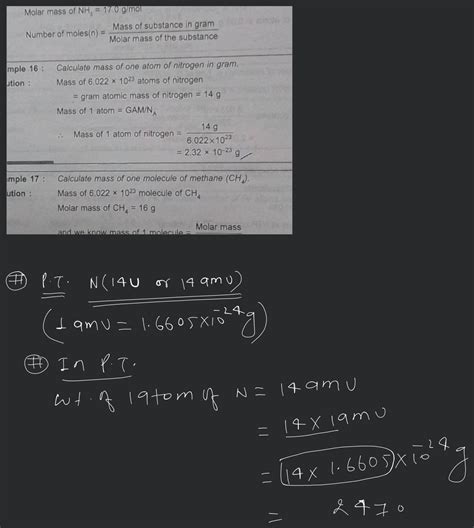 Molar mass of NH₃ = 17.0 g/mol
Number of moles(n) = Mass of substance in gram / Molar mass of the substance
mple 16 : Calculate mass of one atom of nitrogen in gram.
ution : Mass of 6.022 × 10²³ atoms of nitrogen
= gram atomic mass of nitrogen = 14 g
Mass of 1 atom = GAM/N_A
∴ Mass of 1 atom of nitrogen = 14 g / 6.022×10²³
= 2.32 × 10⁻²³ g
mple 17 : Calculate mass of one molecule of methane (CH₄).
ution : Mass of 6.022 × 10²³ molecule of CH₄
Molar mass of CH₄ = 16 g
and we know mass of 1 molecule = Molar mass
# P.T. N(14U or 14 amu)
(1 amu = 1.6605×10⁻²⁴g)
# In P.T.
wt. of 1 atom of N = 14 amu
= 14 × 1 amu
= 14 × 1.6605 × 10⁻²⁴ g
= 2470